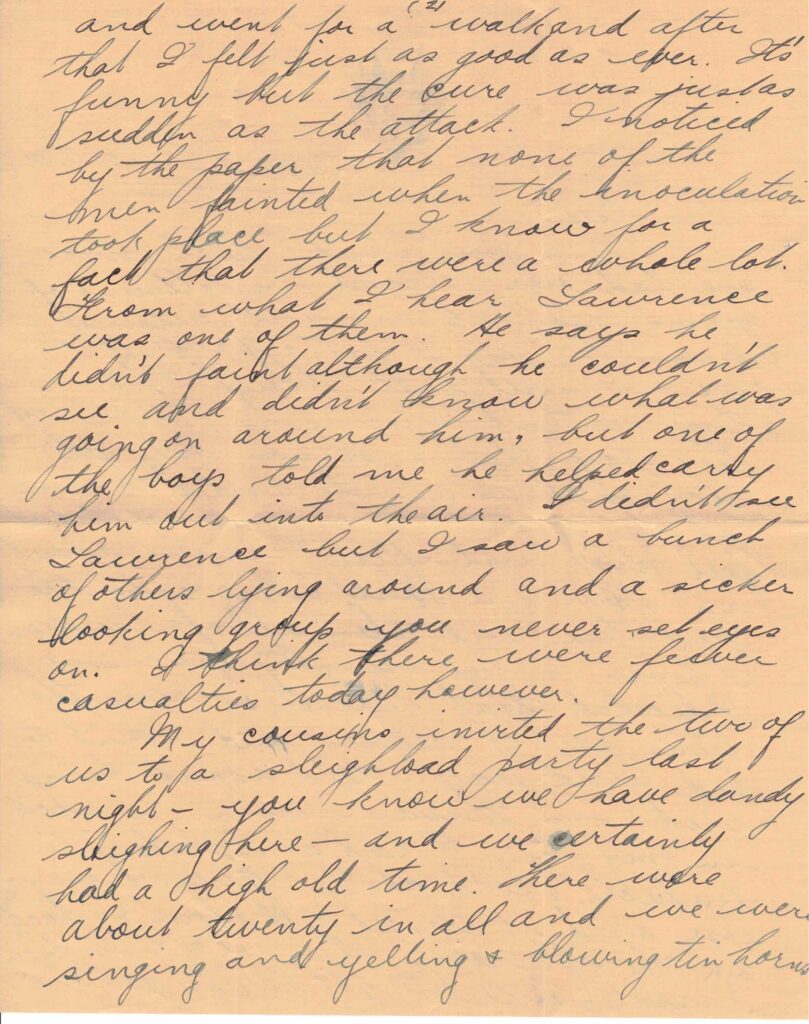 (2)
and went for a walk and after
that I felt just as good as ever. It's
funny but the cure was just as
sudden as the attack. I noticed
by the paper that none of the
men fainted when the inoculation
took place but I know for a
fact that there were a whole lot.
From what I hear Lawrence
was one of them. He says he
didn't faint although he couldn't
see and didn't know what was
going on around him, but one of
the boys told me he helped carry
him out into the air. I didn't see
Lawrence but I saw a bunch
of others lying around and a sicker
looking group you never set eyes
on. I think there were fewer
casualties today however.
My cousins invited the two of
us to a sleighload party last
night - you know we have dandy
sleighing here - and we certainly
had a high old time. There were
about twenty in all and we were
singing and yelling & blowing tin horns